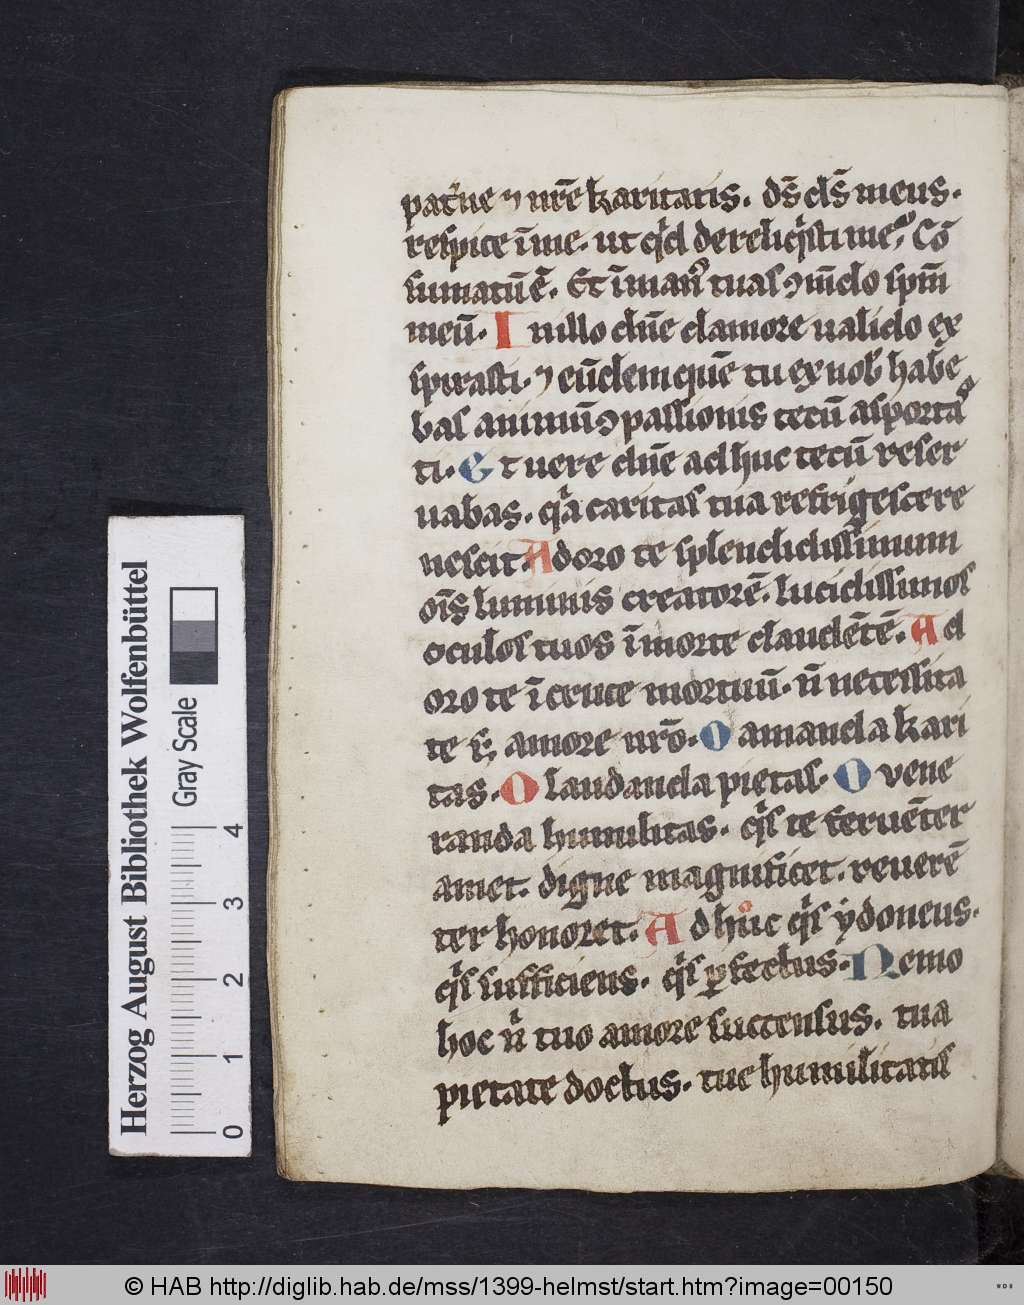 pat̾ne ⁊ nr̄e karitatis. ds̄ ds̄ meus.
respice ī me. ut qͥd dereliqͥsti me. Cō
sumatū ē. Et ī man᷒ tuas ꝯmēdo spm̄
meū. In illo dn̄e clamore ualido ex
spirasti. ⁊ eūdem quē tu ex nob̄ habe
bas animū ꝯpassionis tecū asporta
ti. Et uere dn̄e adhuc tecū reser
uabas. qͥa caritas tua refrigescere
nescit. Adoro te splendidissimum
oīs luminis creatorē. lucidissimos
oculos tuos ī morte claudētē. Ad
oro te ī cruce mortuū. n̄ necessita
te sꝫ amore nr̄o. O amanda kari
tas. O laudanda pietas. O vene
randa humilitas. qͥs te feruēter
amet. digne magnificet. reuerē
ter honoret. Ad hͦuc qͥs ydoneus.
qͥs sufficiens. qͥs ꝑfectus. Nemo
hoc nͥ tuo amore succensus. tua
pietate doctus. tue humilitatis
Herzog August Bibliothek Wolfenbüttel
Gray Scale
0 1 2 3 4
© HAB http://diglib.hab.de/mss/1399-helmst/start.htm?image=00150